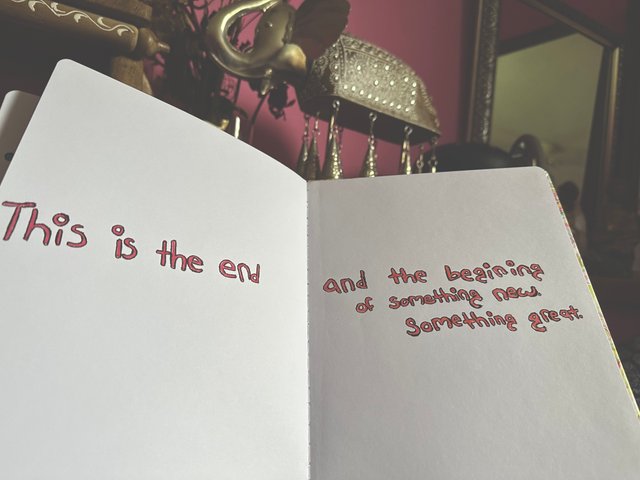 This is the end
and the begining
of something new.
Something great.